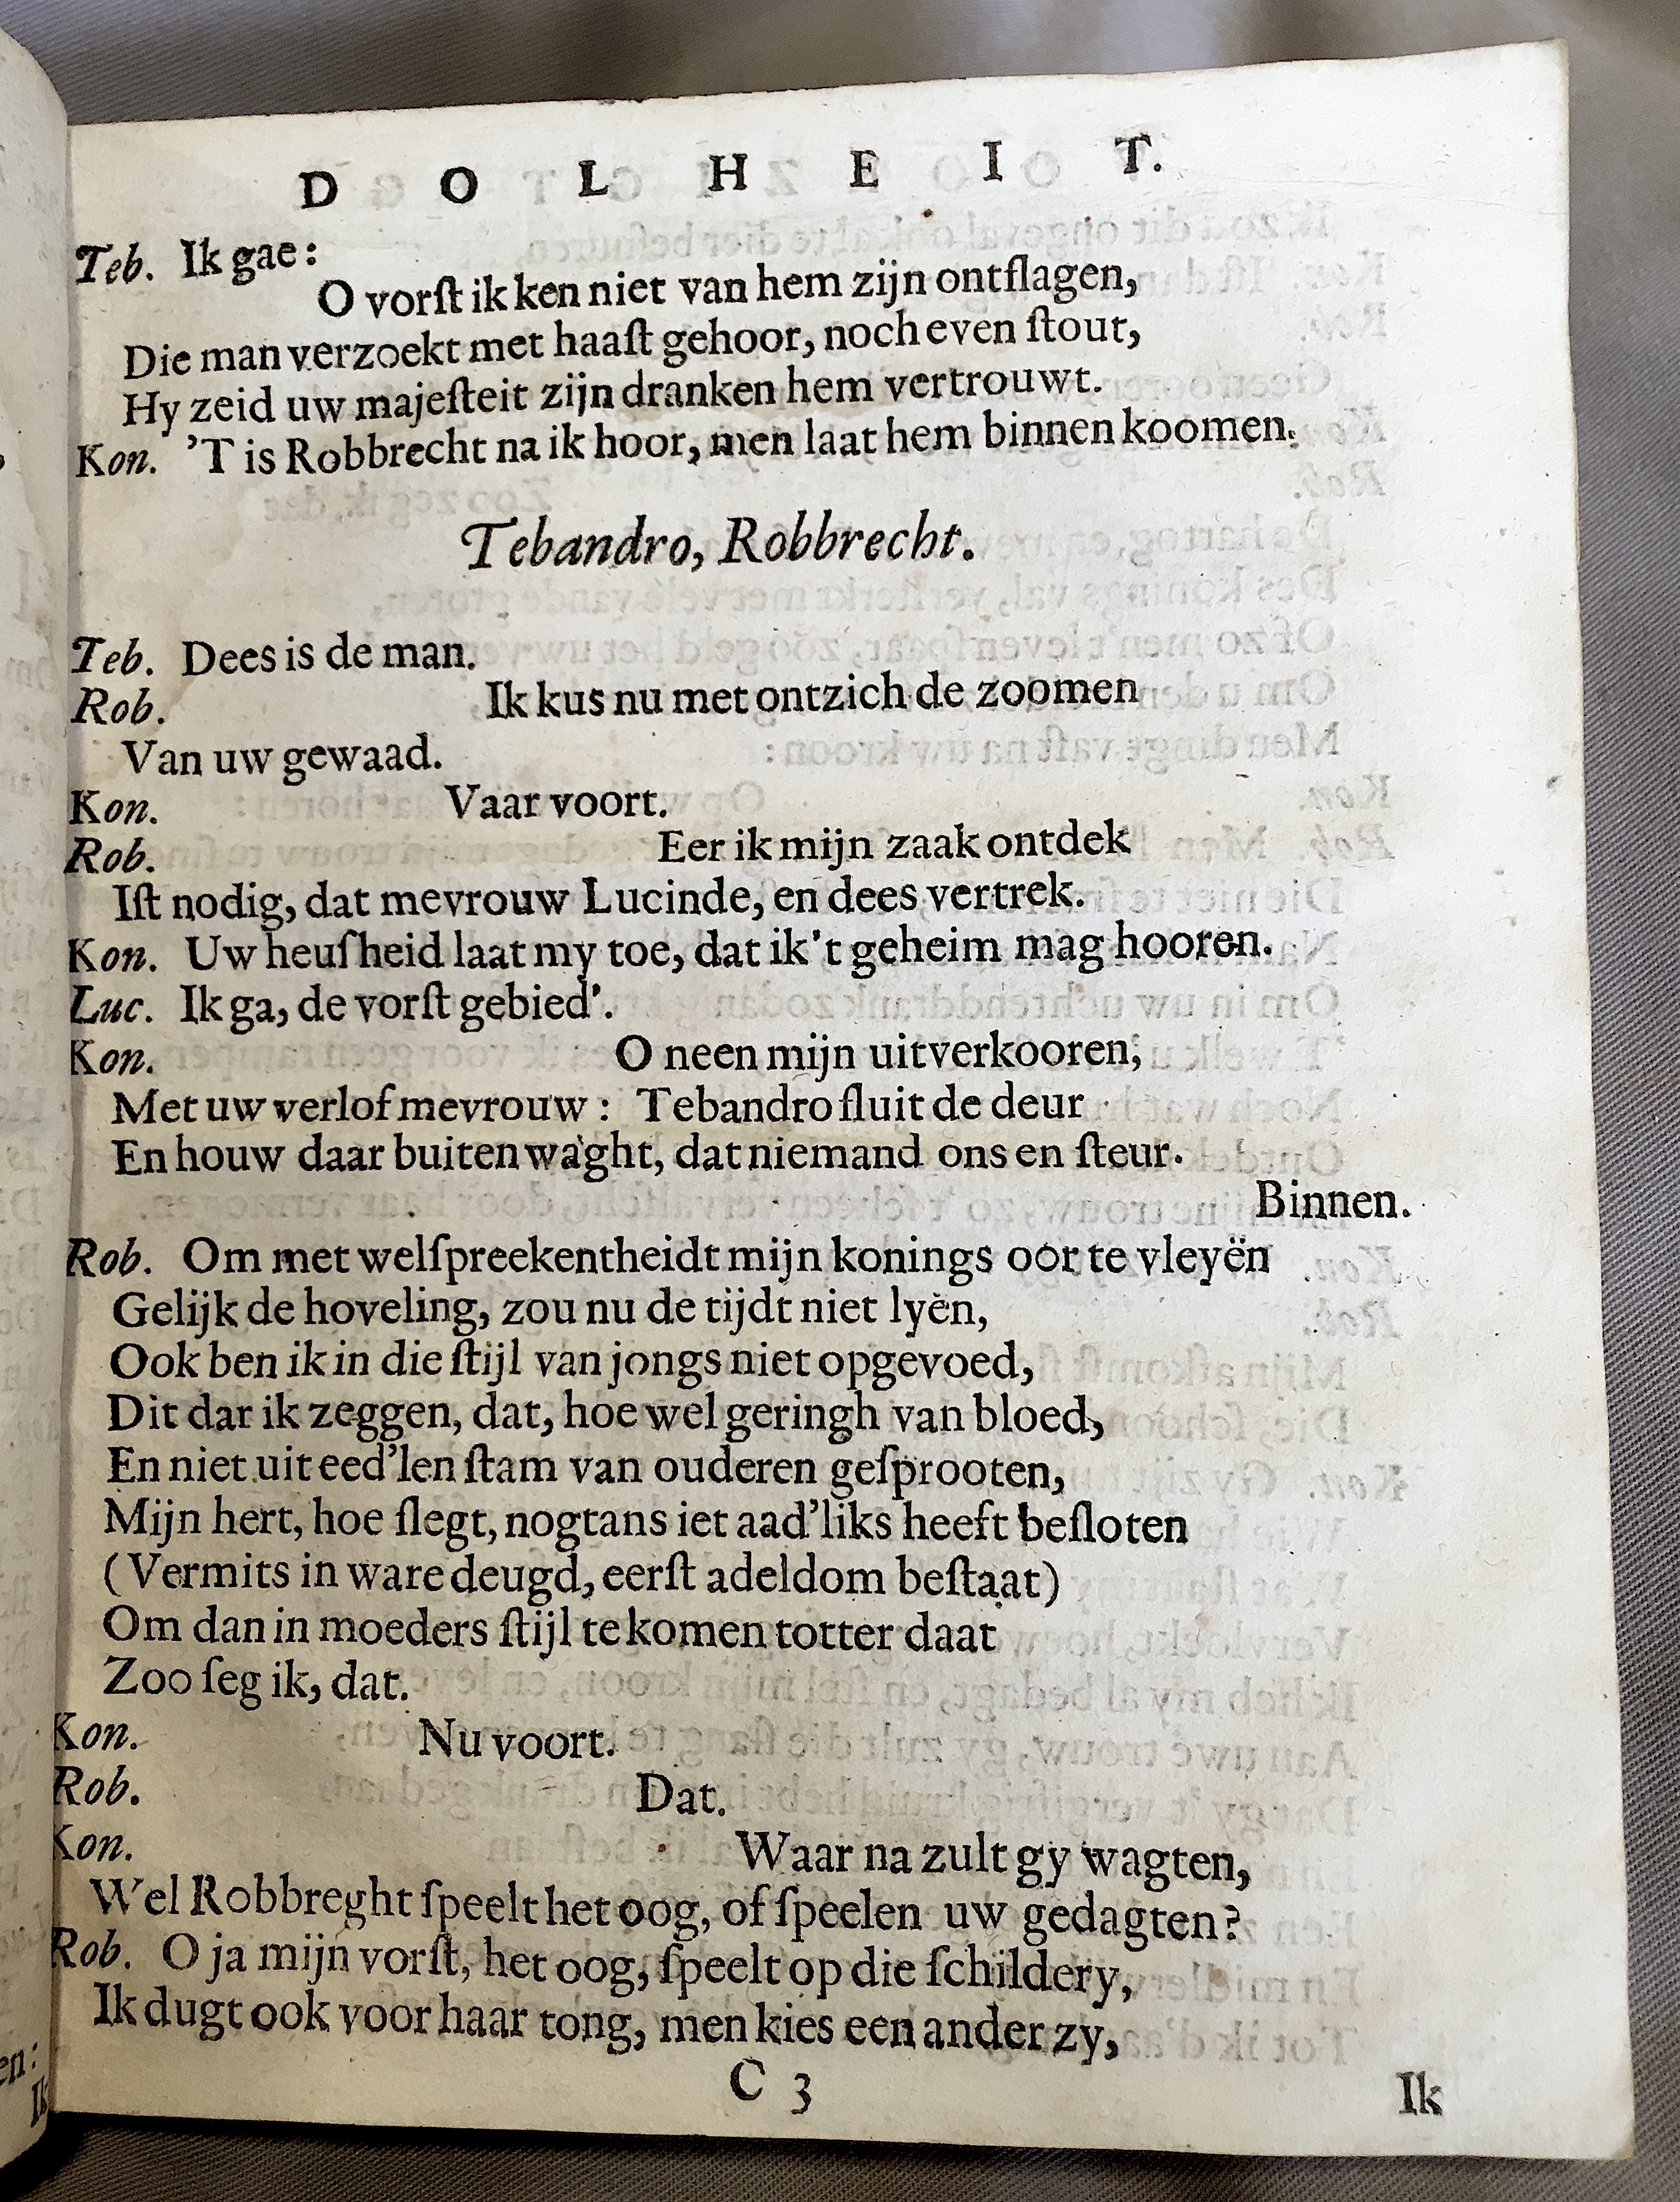 DOLHEIT.
Teb. Ik gae:
O vorſt ik ken niet van hem zijn ontſlagen,
Die man verzoekt met haaſt gehoor, noch even ſtout,
Hy zeid uw majeſteit zijn dranken hem vertrouwt.
Kon. 'T is Robbrecht na ik hoor, men laat hem binnen koomen.
Tebandro, Robbrecht.
Teb. Dees is de man.
Rob. Ik kus nu met ontzich de zoomen
Van uw gewaad.
Kon. Vaar voort.
Rob. Eer ik mijn zaak ontdek
Iſt nodig, dat mevrouw Lucinde, en dees vertrek.
Kon. Uw heuſheid laat my toe, dat ik 't geheim mag hooren.
Luc. Ik ga, de vorſt gebied'.
Kon. O neen mijn uitverkooren,
Met uw verlof mevrouw: Tebandro ſluit de deur
En houw daar buiten waght, dat niemand ons en ſteur.
Binnen.
Rob. Om met welſpreekentheidt mijn konings oor te vleyën
Gelijk de hoveling, zou nu de tijdt niet lyën,
Ook ben ik in die ſtijl van jongs niet opgevoed,
Dit dar ik zeggen, dat, hoe wel geringh van bloed,
En niet uit eed'len ſtam van ouderen geſprooten,
Mijn hert, hoe ſlegt, nogtans iet aad'liks heeft beſloten
(Vermits in ware deugd, eerſt adeldom beſtaat)
Om dan in moeders ſtijl te komen totter daat
Zoo ſeg ik, dat.
Kon. Nu voort.
Rob. Dat.
Kon. Waar na zult gy wagten,
Wel Robbreght ſpeelt het oog, of ſpeelen uw gedagten?
Rob. O ja mijn vorſt, het oog, ſpeelt op die ſchildery,
Ik dugt ook voor haar tong, men kies een ander zy,
C 3
Ik
en:
Ik